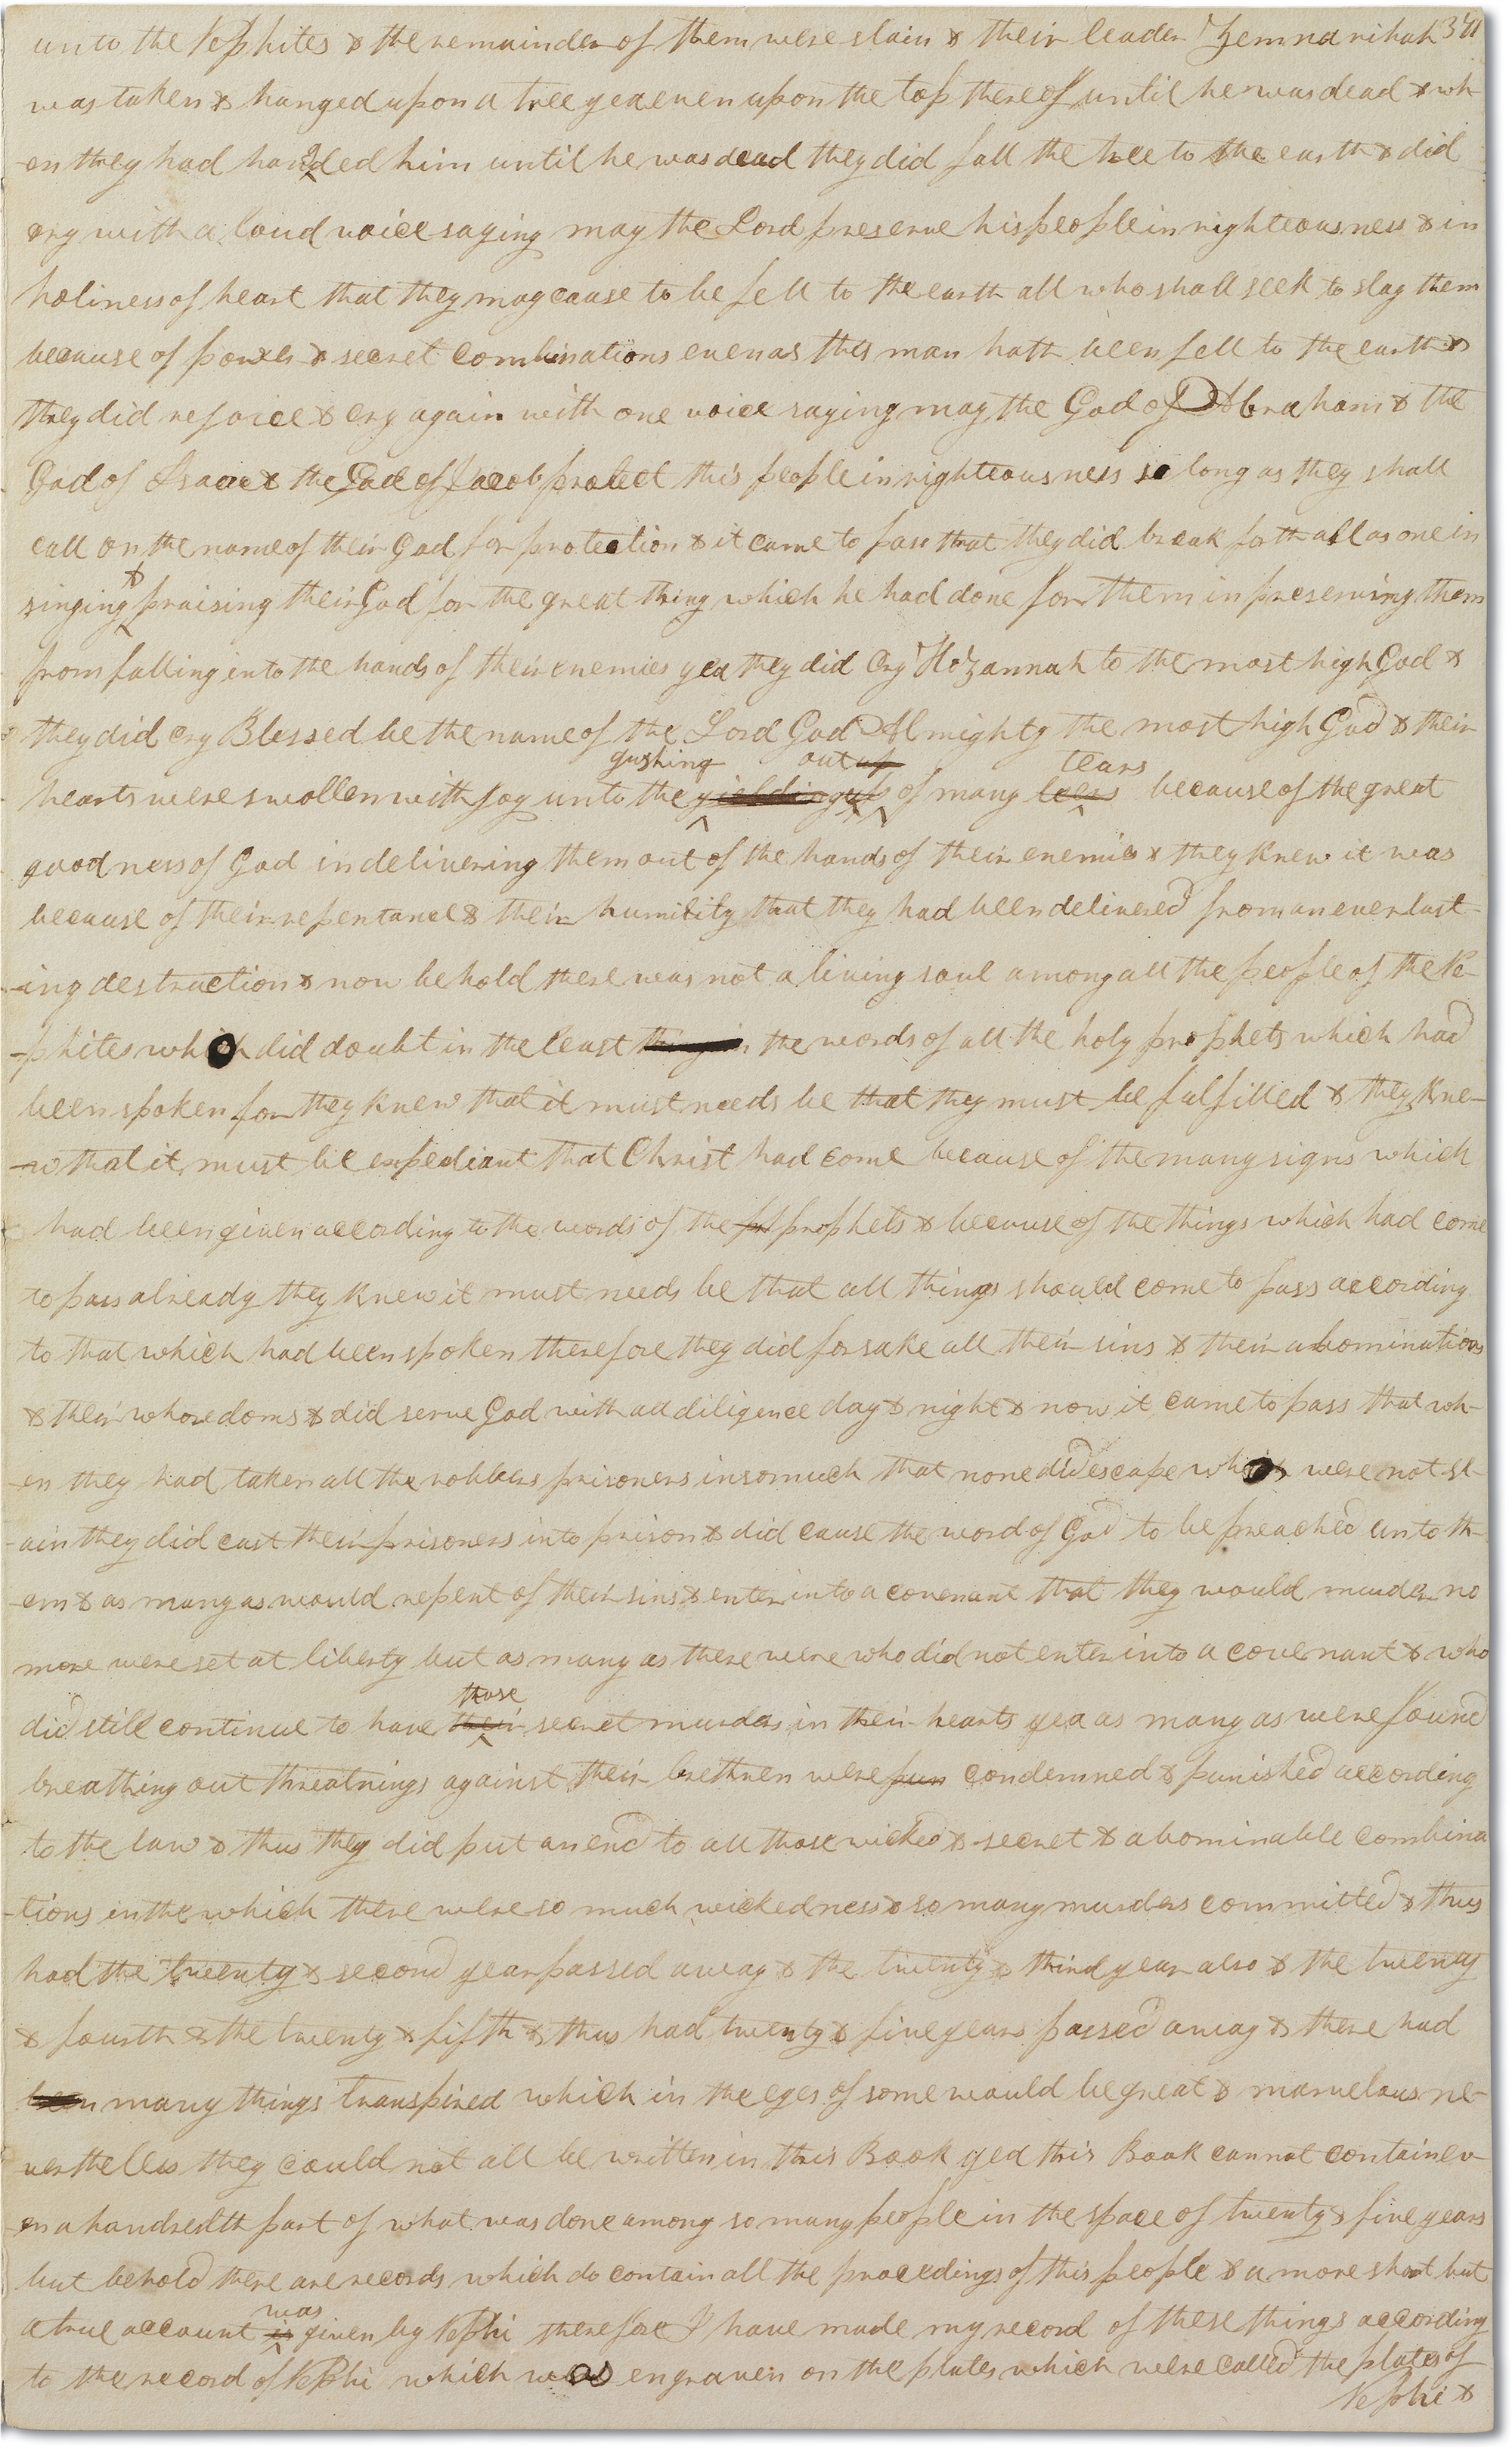 unto the Nephites & the remainder of them were slain & their leader Zemnarihah 371
was taken & hanged upon a tree yea even upon the top thereof until he was dead & wh-
-en they had hanged him until he was dead they did fall the tree to the earth & did
cry with a loud voice saying may the Lord preserve his people in righteousness & in
holiness of heart that they may cause to be fell to the earth all who shall seek to slay them
because of power & secret combinations even as this man hath been fell to the earth &
they did rejoice & cry again with one voice saying may the God of Abraham & the
God of Isaac & the God of Jacob protect this people in righteousness so long as they shall
call on the name of their God for protection & it came to pass that they did break forth all as one in
singing & praising their God for the great thing which he had done for them in preserving them
from falling into the hands of their enemies yea they did cry Hozannah to the most high God &
they did cry Blessed be the name of the Lord God Almighty the most high God & their
gushing out up tears
hearts were swollen with joy unto the yielding up of many because of the great
goodness of God in delivering them out of the hands of their enemies & they knew it was
because of their repentance & their humility that they had been delivered from an everlast-
-ing destruction & now behold there was not a living soul among all the people of the Ne-
-phites which did doubt in the least thing in the words of all the holy prophets which had
been spoken for they knew that it must needs be that they must be fulfilled & they kne-
-w that it must be expediant that Christ had come because of the many signs which
had been given according to the words of the prophets & because of the things which had come
to pass already they knew it must needs be that all things should come to pass according
to that which had been spoken therefore they did forsake all their sins & their abominations
& their whoredoms & did serve God with all diligence day & night & now it came to pass that wh-
-en they had taken all the robbers prisoners insomuch that none did escape which were not sl-
-ain they did cast their prisoners into prison & did cause the word of God to be preached unto th-
-em & as many as would repent of their sins & enter into a covenant that they would murder no
more were set at liberty but as many as there were who did not enter into a covenant & who
those
did still continue to have their secret murders in their hearts yea as many as were found
breathing out threatnings against their brethren were pun condemned & punished according
to the law & thus they did put an end to all those wicked & secret & abominable combina
-tions in the which there were so much wickedness & so many murders committed & thus
had the twenty & second year passed away & the twenty & third year also & the twenty
& fourth & the twenty & fifth & thus had twenty & five years passed away & there had
been many things transpired which in the eyes of some would be great & marvelous ne-
vertheless they could not all be written in this Book yea this Book cannot contain ev-
-en a hundredth part of what was done among so many people in the space of twenty & five years
but behold there are records which do contain all the procedings of this people & a more short but
was
a true account is given by Nephi therefore I have made my record of these things according
to the record of Nephi which was engraven on the plates which were called the plates of
Nephi &